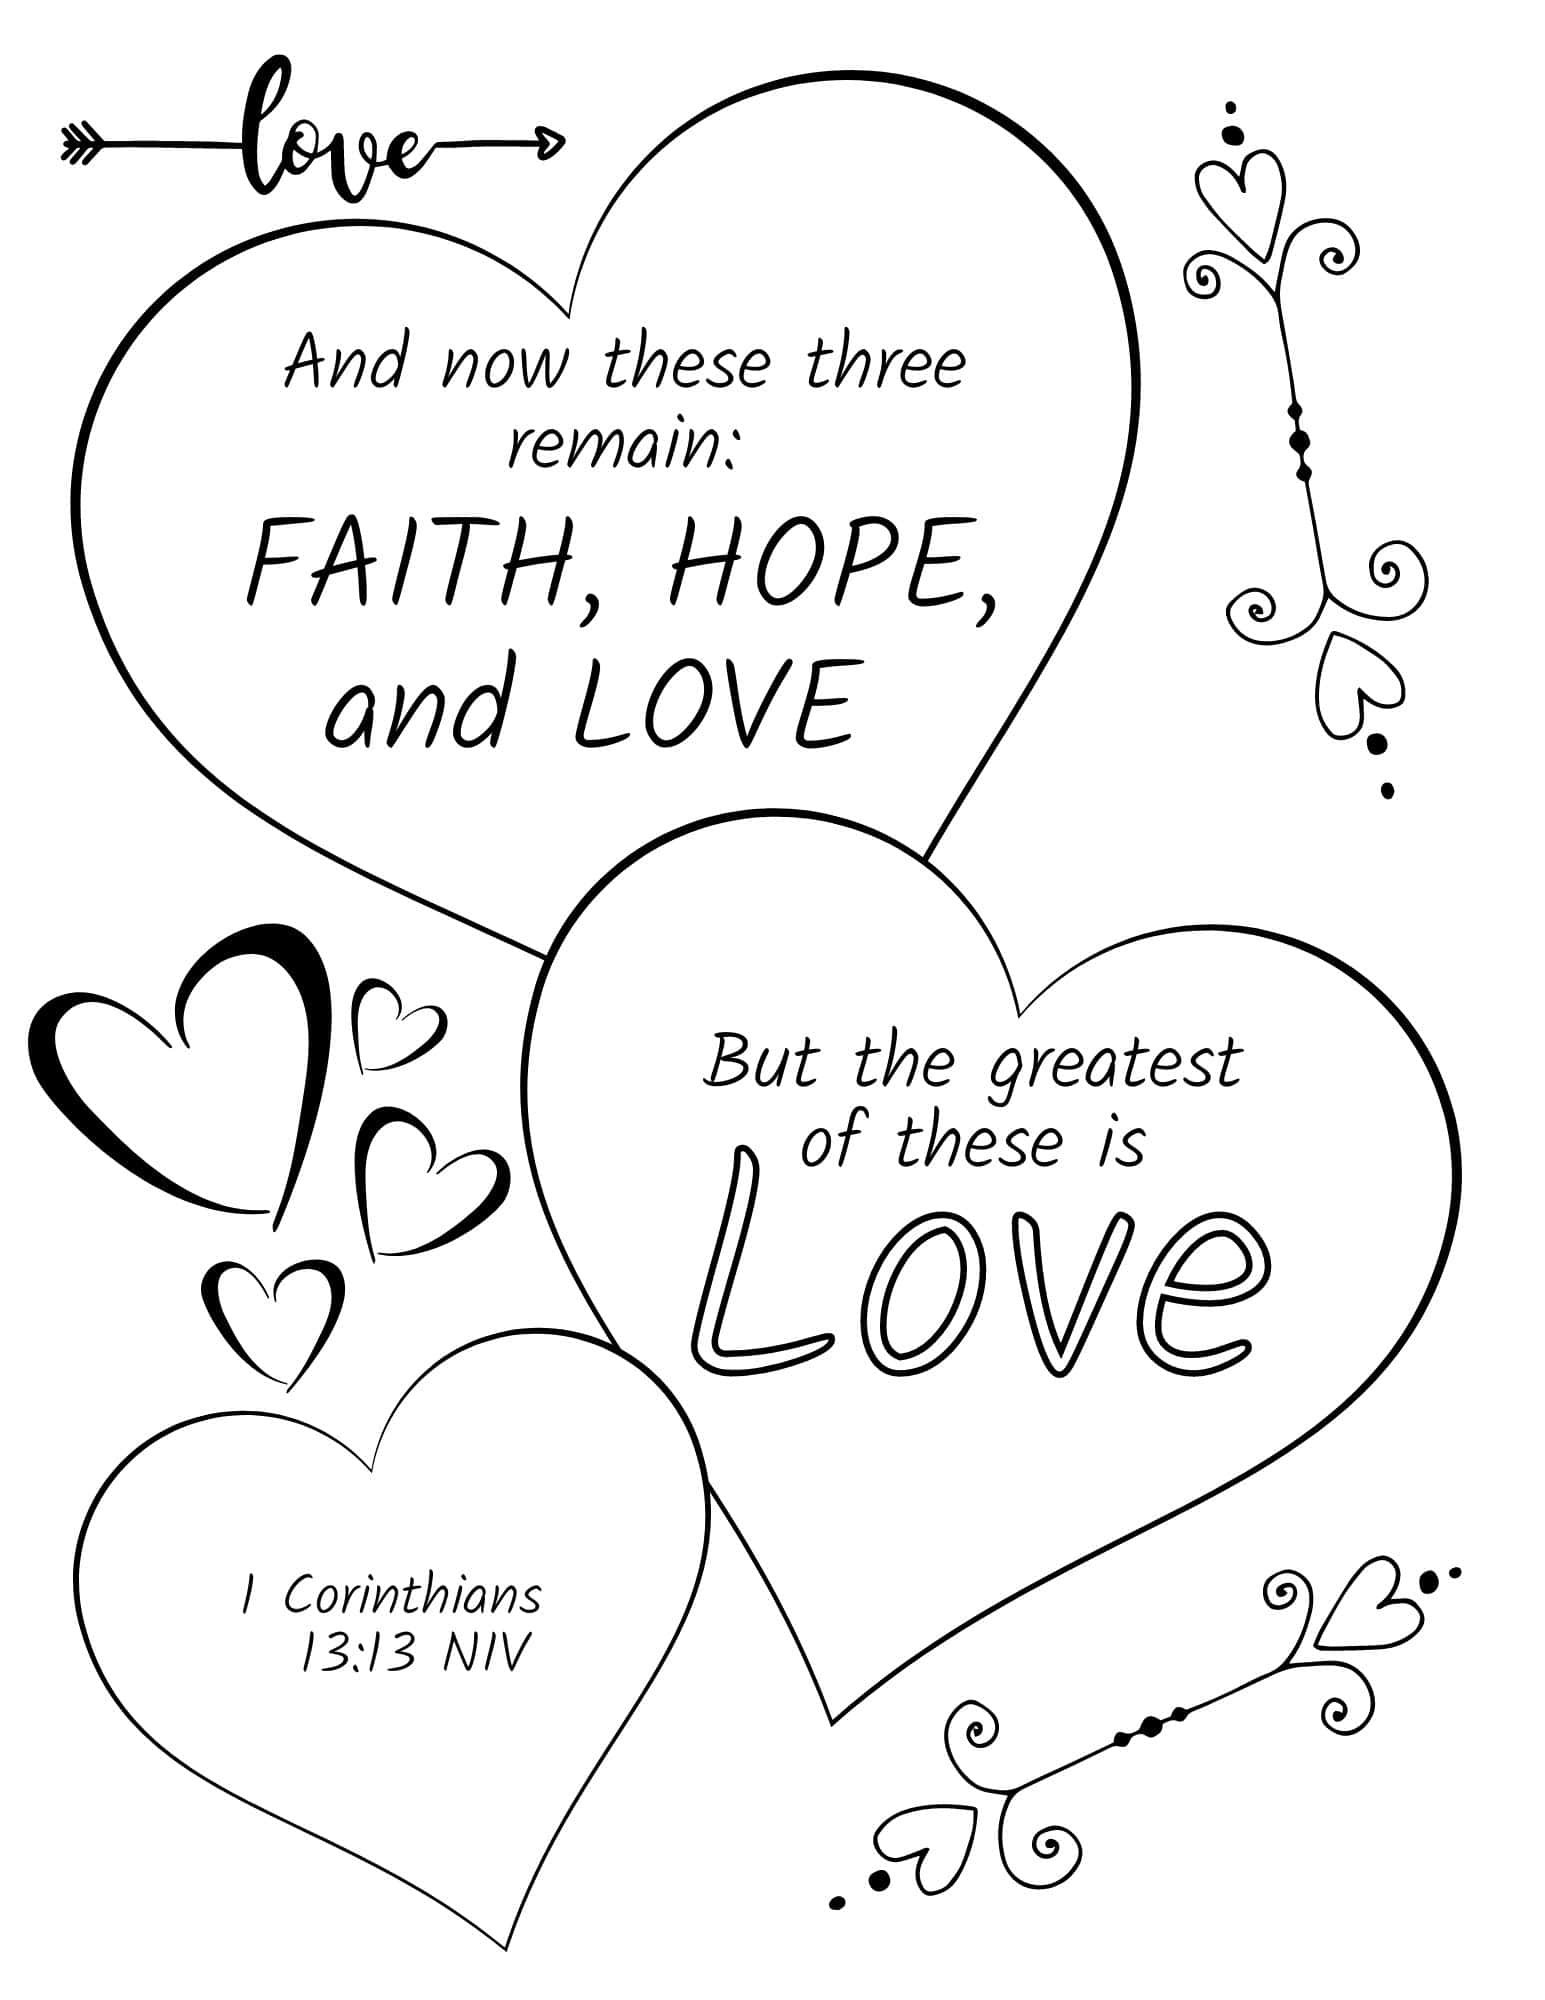 love
And now these three
remain:
FAITH, HOPE,
and LOVE
But the greatest
of these is
Love
1 Corinthians
13:13 NIV